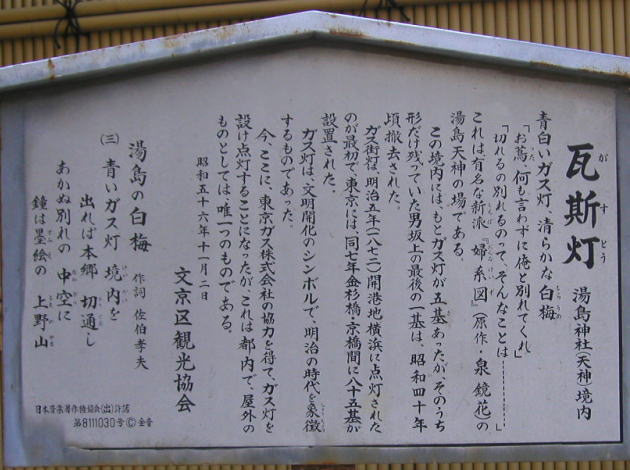 瓦斯灯 湯島神社(天神)境内
がすとう
青白いガス灯、清らかな白梅
「お蔦、何も言わずに俺と別れてくれ」
「切れるの別れるのって、そんなことは………」
これは有名な新派『婦系図』(原作・泉鏡花)の
湯島天神の場である。
この境内には、もとガス灯が五基あったが、そのうち
形だけ残っていた男坂上の最後の一基は、昭和四十年
頃撤去された。
ガス街灯は、明治五年(一八七二)開港地横浜に点灯された
のが最初で、東京には、同七年金杉橋・京橋間に八十五基が
設置された。
ガス灯は、文明開化のシンボルで、明治の時代を象徴
するものであった。
今、ここに、東京ガス株式会社の協力を得て、ガス灯を
設け点灯することになったが、これは都内で、屋外の
ものとしては唯一つのものである。
昭和五十六年十一月二日
文京区観光協会
湯島の白梅 作詞 佐伯孝夫
(三) 青いガス灯 境内を
出れば本郷 切通し
あかぬ別れの 中空に
鐘は墨絵の 上野山
日本音楽著作権協会(出)許諾
第8111030号Ⓒ全音